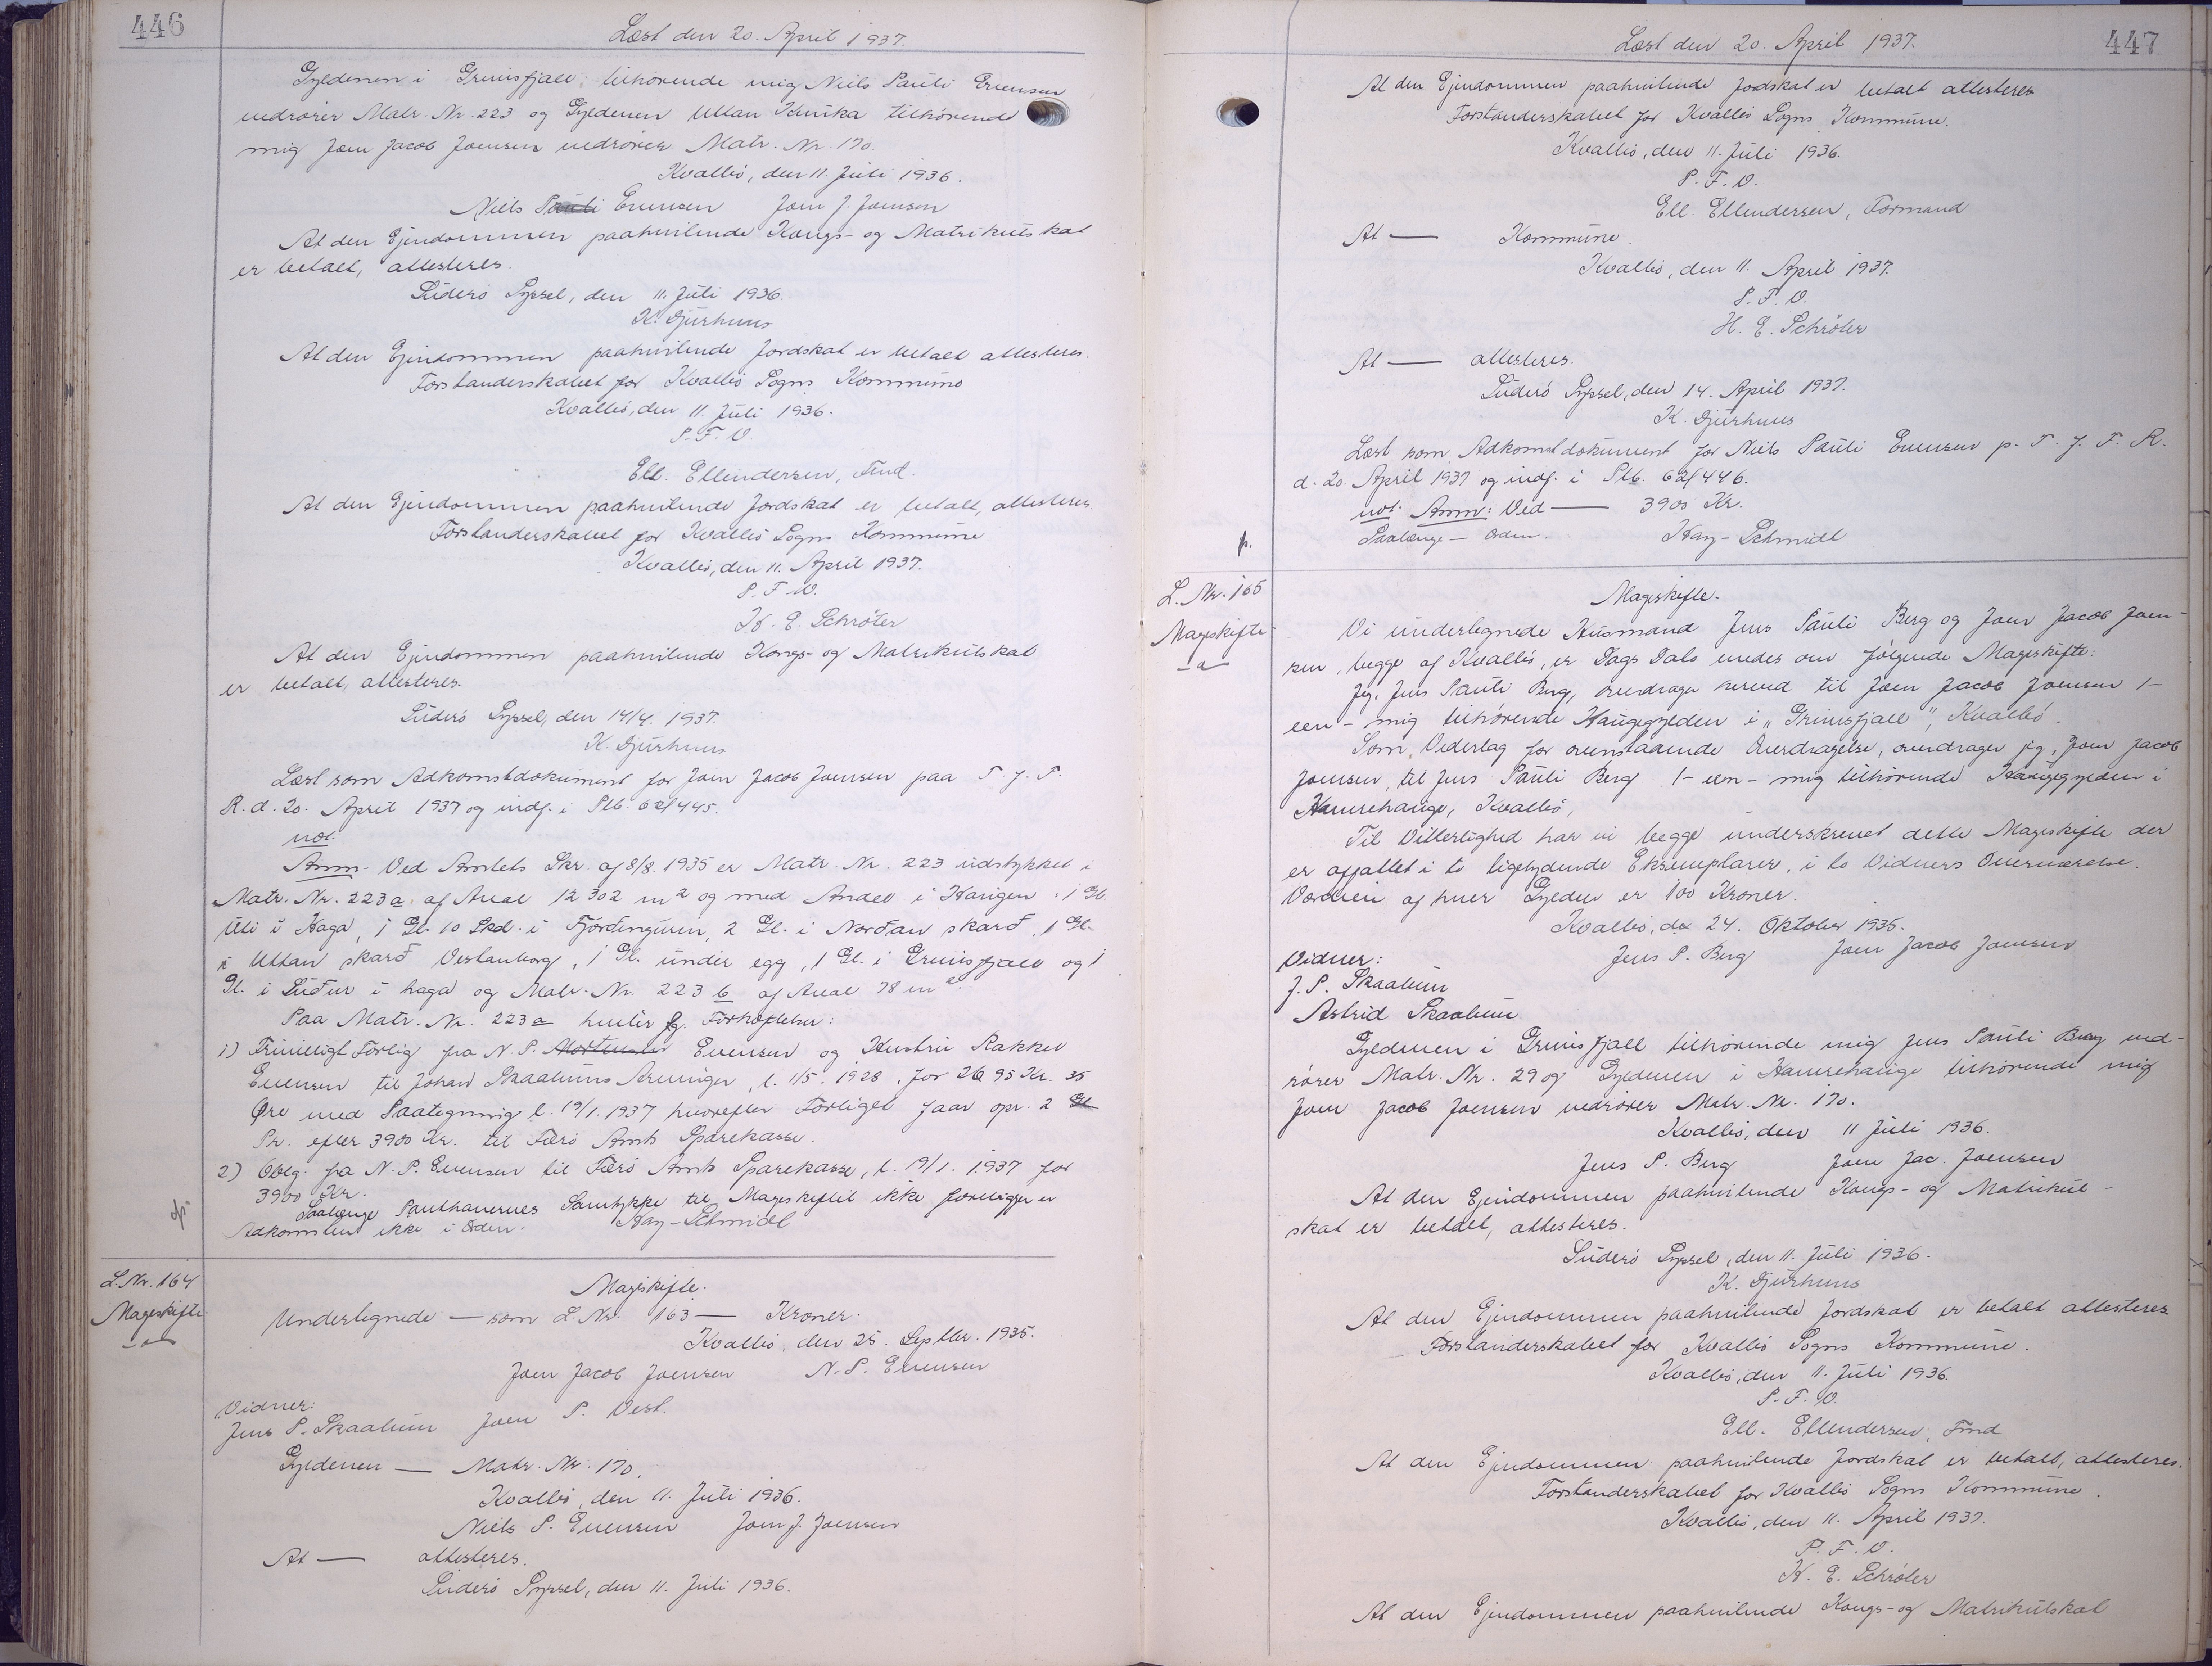 446
Læst den 20. April 1937.
Gyldenen i Grimsfjall tilhørende mig Niels Pauli Evensen
vedrører Matr. Nr. 223 og Gyldenen Uttan tilhørende
mig Joen Jacob Joensen vedrører Matr. Nr. 170.
Kvalbø, den 11. Juli 1936.
Niels Pauli Evensen Joen J. Joensen
At den Ejendommen paahvilende Kongs- og Matrikulskat
er betalt, attesteres.
Suderø Syssel, den 11. Juli 1936.
K. Djurhuus
At den Ejendommen paahvilende Jordskat er betalt attesteres.
Forstanderskabet for Kvalbø Sogns Kommune
Kvalbø, den 11. Juli 1936.
P. F. V.
Ell. Ellendersen, Fmd.
At den Ejendommen paahvilende Jordskat er betalt, attesteres.
Forstanderskabet for Kvalbø Sogns Kommune
Kvalbø, den 11. April 1937.
P. F. V.
H. E. Schrøter
At den Ejendommen paahvilende Kongs- og Matrikulskat
er betalt, attesteres.
Suderø Syssel, den 14/4. 1937.
K. Djurhuus
Læst som Adkomstdokument for Joen Jacob Joensen paa T. f. F.
R. d. 20. April 1937 og indf. i Ptb. 62/445.
not.
Anm. Ved Amtets Skr. af 8/8. 1935 er Matr. Nr. 223 udstykket i
Matr. Nr. 223a af Areal 12302 m2 og med Andel i Haugen: 1 Gl.
Uti i Haga, 1 Gl. 10 Skd. i Fjórðingunn, 2 Gl. i Norðan skarð, 1 Gl.
i Uttan skarð Vestanborg, 1 Gl. undir egg, 1 Gl. i Grimsfjall og 1
Gl. i Suður i haga og Matr. Nr. 223 b af Areal 78 m2.
Paa Matr. Nr. 223a hviler flg. Forhæftelser:
1) Frivilligt Forlig fra N. P. Mortensen Evensen og Hustru Rakkel
Evensen til Johan Skaalums Arvinger, l. 1/5. 1928, for 2695 Kr. 35
Øre med Paategning l. 19/1. 1937, hvorefter Forliget faar opr. 2 Gl
Pr. efter 3900 Kr. til Færø Amts Sparekasse.
2) Oblg. fra N. P. Evensen til Færø Amts Sparekasse, l. 19/1. 1937 for
3900 Kr.
Saalænge Panthavernes Samtykke til Mageskiftet ikke foreligger er
Adkomsten ikke i Orden. Hay-Schmidt
L. Nr. 164
Mageskifte.
Mageskifte.
Underlegnede — som L. Nr. 163 — Kroner.
Kvalbø, den 25. Septbr. 1935.
Joen Jacob Joensen N. P. Evensen
Vidner:
Jens P. Skaalum Joen P. Vest.
Gyldenen — Matr. Nr. 170.
Kvalbø, den 11. Juli 1936.
Niels P. Evensen Joen J. Joensen
At — attesteres.
Suderø Syssel, den 11. Juli 1936.
447
Læst den 20. April 1937.
At den Ejendommen paahvilende Jordskat er betalt attesteres
Forstanderskabet for Kvalbø Sogns Kommune.
Kvalbø, den 11. Juli 1936.
P. F. V.
Ell. Ellendersen, Formand
At — Kommune.
Kvalbø, den 11. April 1937.
P. F. V.
H. E. Schrøter
At — attesteres.
Suderø Syssel, den 14. April 1937.
K. Djurhuus
Læst som Adkomstdokument for Niels Pauli Evensen p. T. f. F. R.
d. 20. April 1937 og indf. i Ptb. 62/446.
not. Anm: Ved — 3900 Kr.
Saalænge — Orden. Hay-Schmidt
L. Nr. 165
Mageskifte
Mageskifte.
Vi underlegnede Husmand Jens Pauli Berg og Joen Jacob Joen-
sen, begge af Kvalbø, er Dags Dato enedes om følgende Mageskifte:
Jeg, Jens Pauli Berg, overdrager herved til Joen Jacob Joensen 1-
een - mig tilhørende Haugegylden i „Grimsfjall", Kvalbø.
Som Vederlag for ovenstaaende Overdragelse, overdrager jeg, Joen Jacob
Joensen, til Jens Pauli Berg 1- een - mig tilhørende Haugegylden i
Hamrehauge, Kvalbø,
Til Vitterlighed har vi begge underskrevet dette Mageskifte der
er affattet i to ligelydende Eksemplarer, i to Vidners Overværelse.
Værdien af hver Gylden er 100 Kroner.
Kvalbø, den 24. Oktober 1935.
Vidner: Jens P. Berg Joen Jacob Joensen
J. P. Skaalum
Astrid Skaalum
Gyldenen i Grimsfjall tilhørende mig Jens Pauli Berg ved-
rører Matr. Nr. 29 og Gyldenen i Hamrehauge tilhørende mig
Joen Jacob Joensen vedrører Matr. Nr. 170.
Kvalbø, den 11 Juli 1936.
Jens P. Berg Joen Jac. Joensen
At den Ejendommen paahvilende Kongs- og Matrikul-
skat er betalt, attesteres.
Suderø Syssel, den 11. Juli 1936.
K. Djurhuus
At den Ejendommen paahvilende Jordskat er betalt attesteres
Forstanderskabet for Kvalbø Sogns Kommune.
Kvalbø, den 11. Juli 1936.
P. F. V.
Ell. Ellendersen, Fmd
At den Ejendommen paahvilende Jordskat er betalt, attesteres.
Forstanderskabet for Kvalbø Sogns Kommune.
Kvalbø, den 11. April 1937.
P. F. V.
H. E. Schrøter
At den Ejendommen paahvilende Kongs- og Matrikulskat